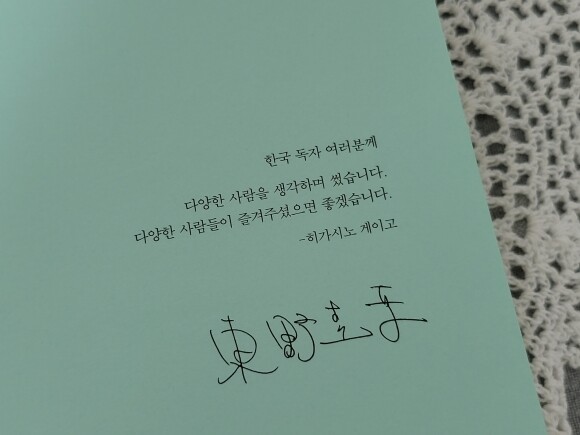 한국 독자 여러분께
다양한 사람을 생각하며 썼습니다.
다양한 사람들이 즐겨주셨으면 좋겠습니다.
-히가시노 게이고
東野圭吾